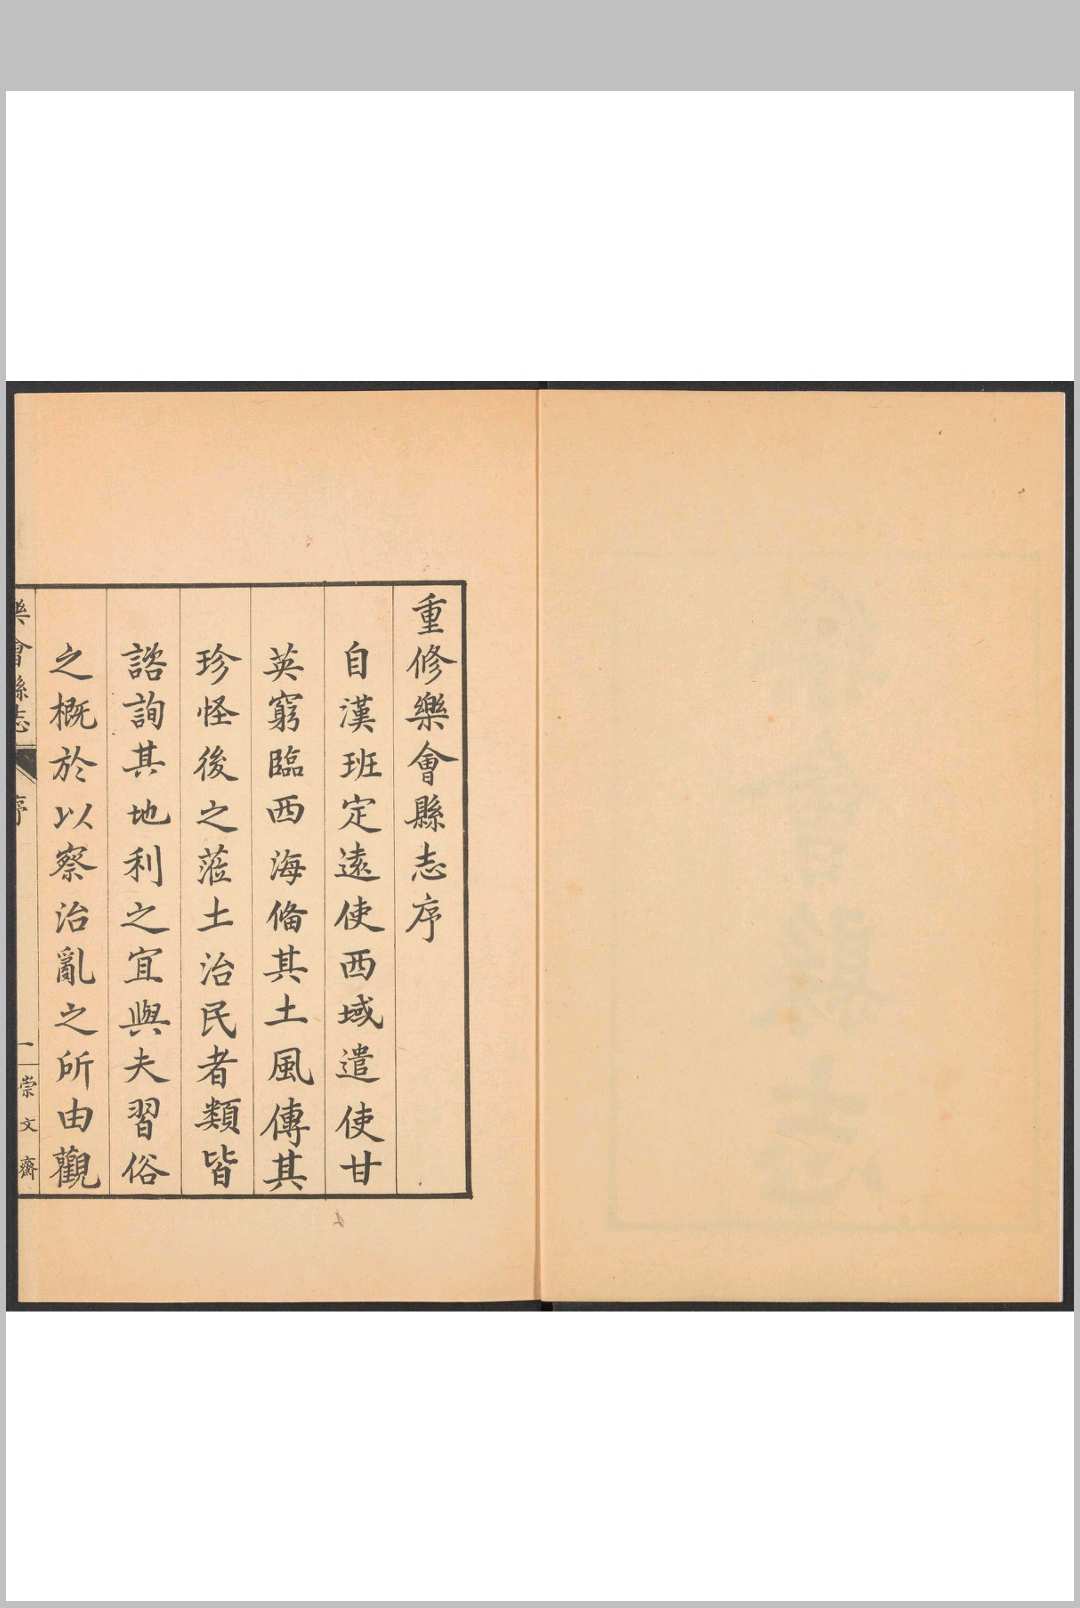 重修樂會縣志序
自漢班定遠使西域遣使甘
英窮臨西海俻其土風傳其
珍怪後之蒞土治民者類皆
諮詢其地利之宜與夫習俗
之概於以察治亂之所由觀
樂會縣志
序
一
崇文齋